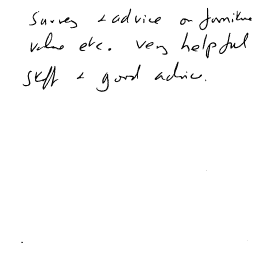 Survey + advice on furniture
value etc. Very helpful
staff + good advice.